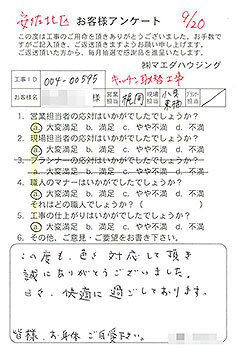 安佐北区 お客様アンケート 9/20
この度は工事のご用命を頂きありがとうございました。お手数で
すがご記入頂き、ご返送頂きますようお願い申し上げます。
ご返送頂いた方から、毎月抽選で感謝品を進呈いたします。
㈱マエダハウジング
工事ID 004-00595 キッチン取替工事
お客様名 様 営業担当 現場担当
1. 営業担当者の応対はいかがでしたでしょうか?
a. 大変満足 b. 満足 c. やや不満 d. 不満
2. 現場担当者の応対はいかがでしたでしょうか?
a. 大変満足 b. 満足 c. やや不満 d. 不満
3. プランナーの応対はいかがでしたでしょうか?
a. 大変満足 b. 満足 c. やや不満 d. 不満
4. 職人のマナーはいかがでしたでしょうか?
a. 大変満足 b. 満足 c. やや不満 d. 不満
それはどの職人でしょうか?( )
5. 工事の仕上がりはいかがでしたでしょうか?
a. 大変満足 b. 満足 c. やや不満 d. 不満
6. その他、ご意見・ご要望をお書き下さい。
この度も、色々対応して頂き
誠にありがとうございました。
日々、快適に過ごしております。
皆様、お身体ご自愛下さい。